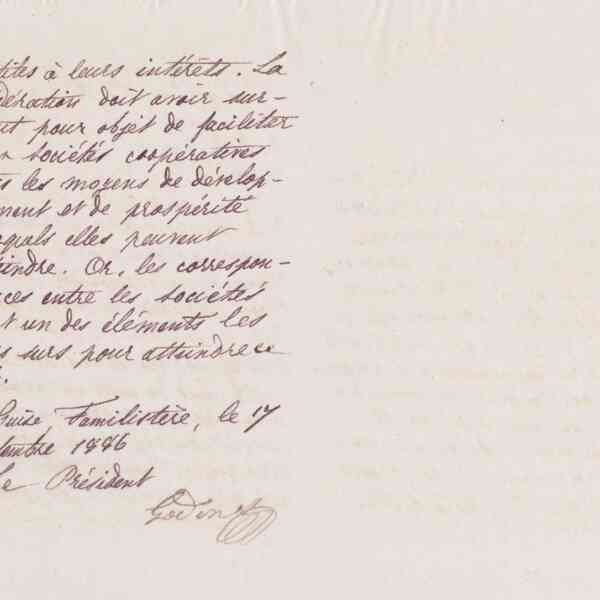 tites à leurs intérêts. La
dération doit avoir sur-
ut pour objet de faciliter
x sociétés coopératives
s les moyens de dévelop-
ment et de prospérité
squels elles peuvent
eindre. Or, les correspon-
ces entre les sociétés
t un des éléments les
s surs pour atteindre ce
Guise, Familistère, le 17
tembre 1886
Le Président
Godin